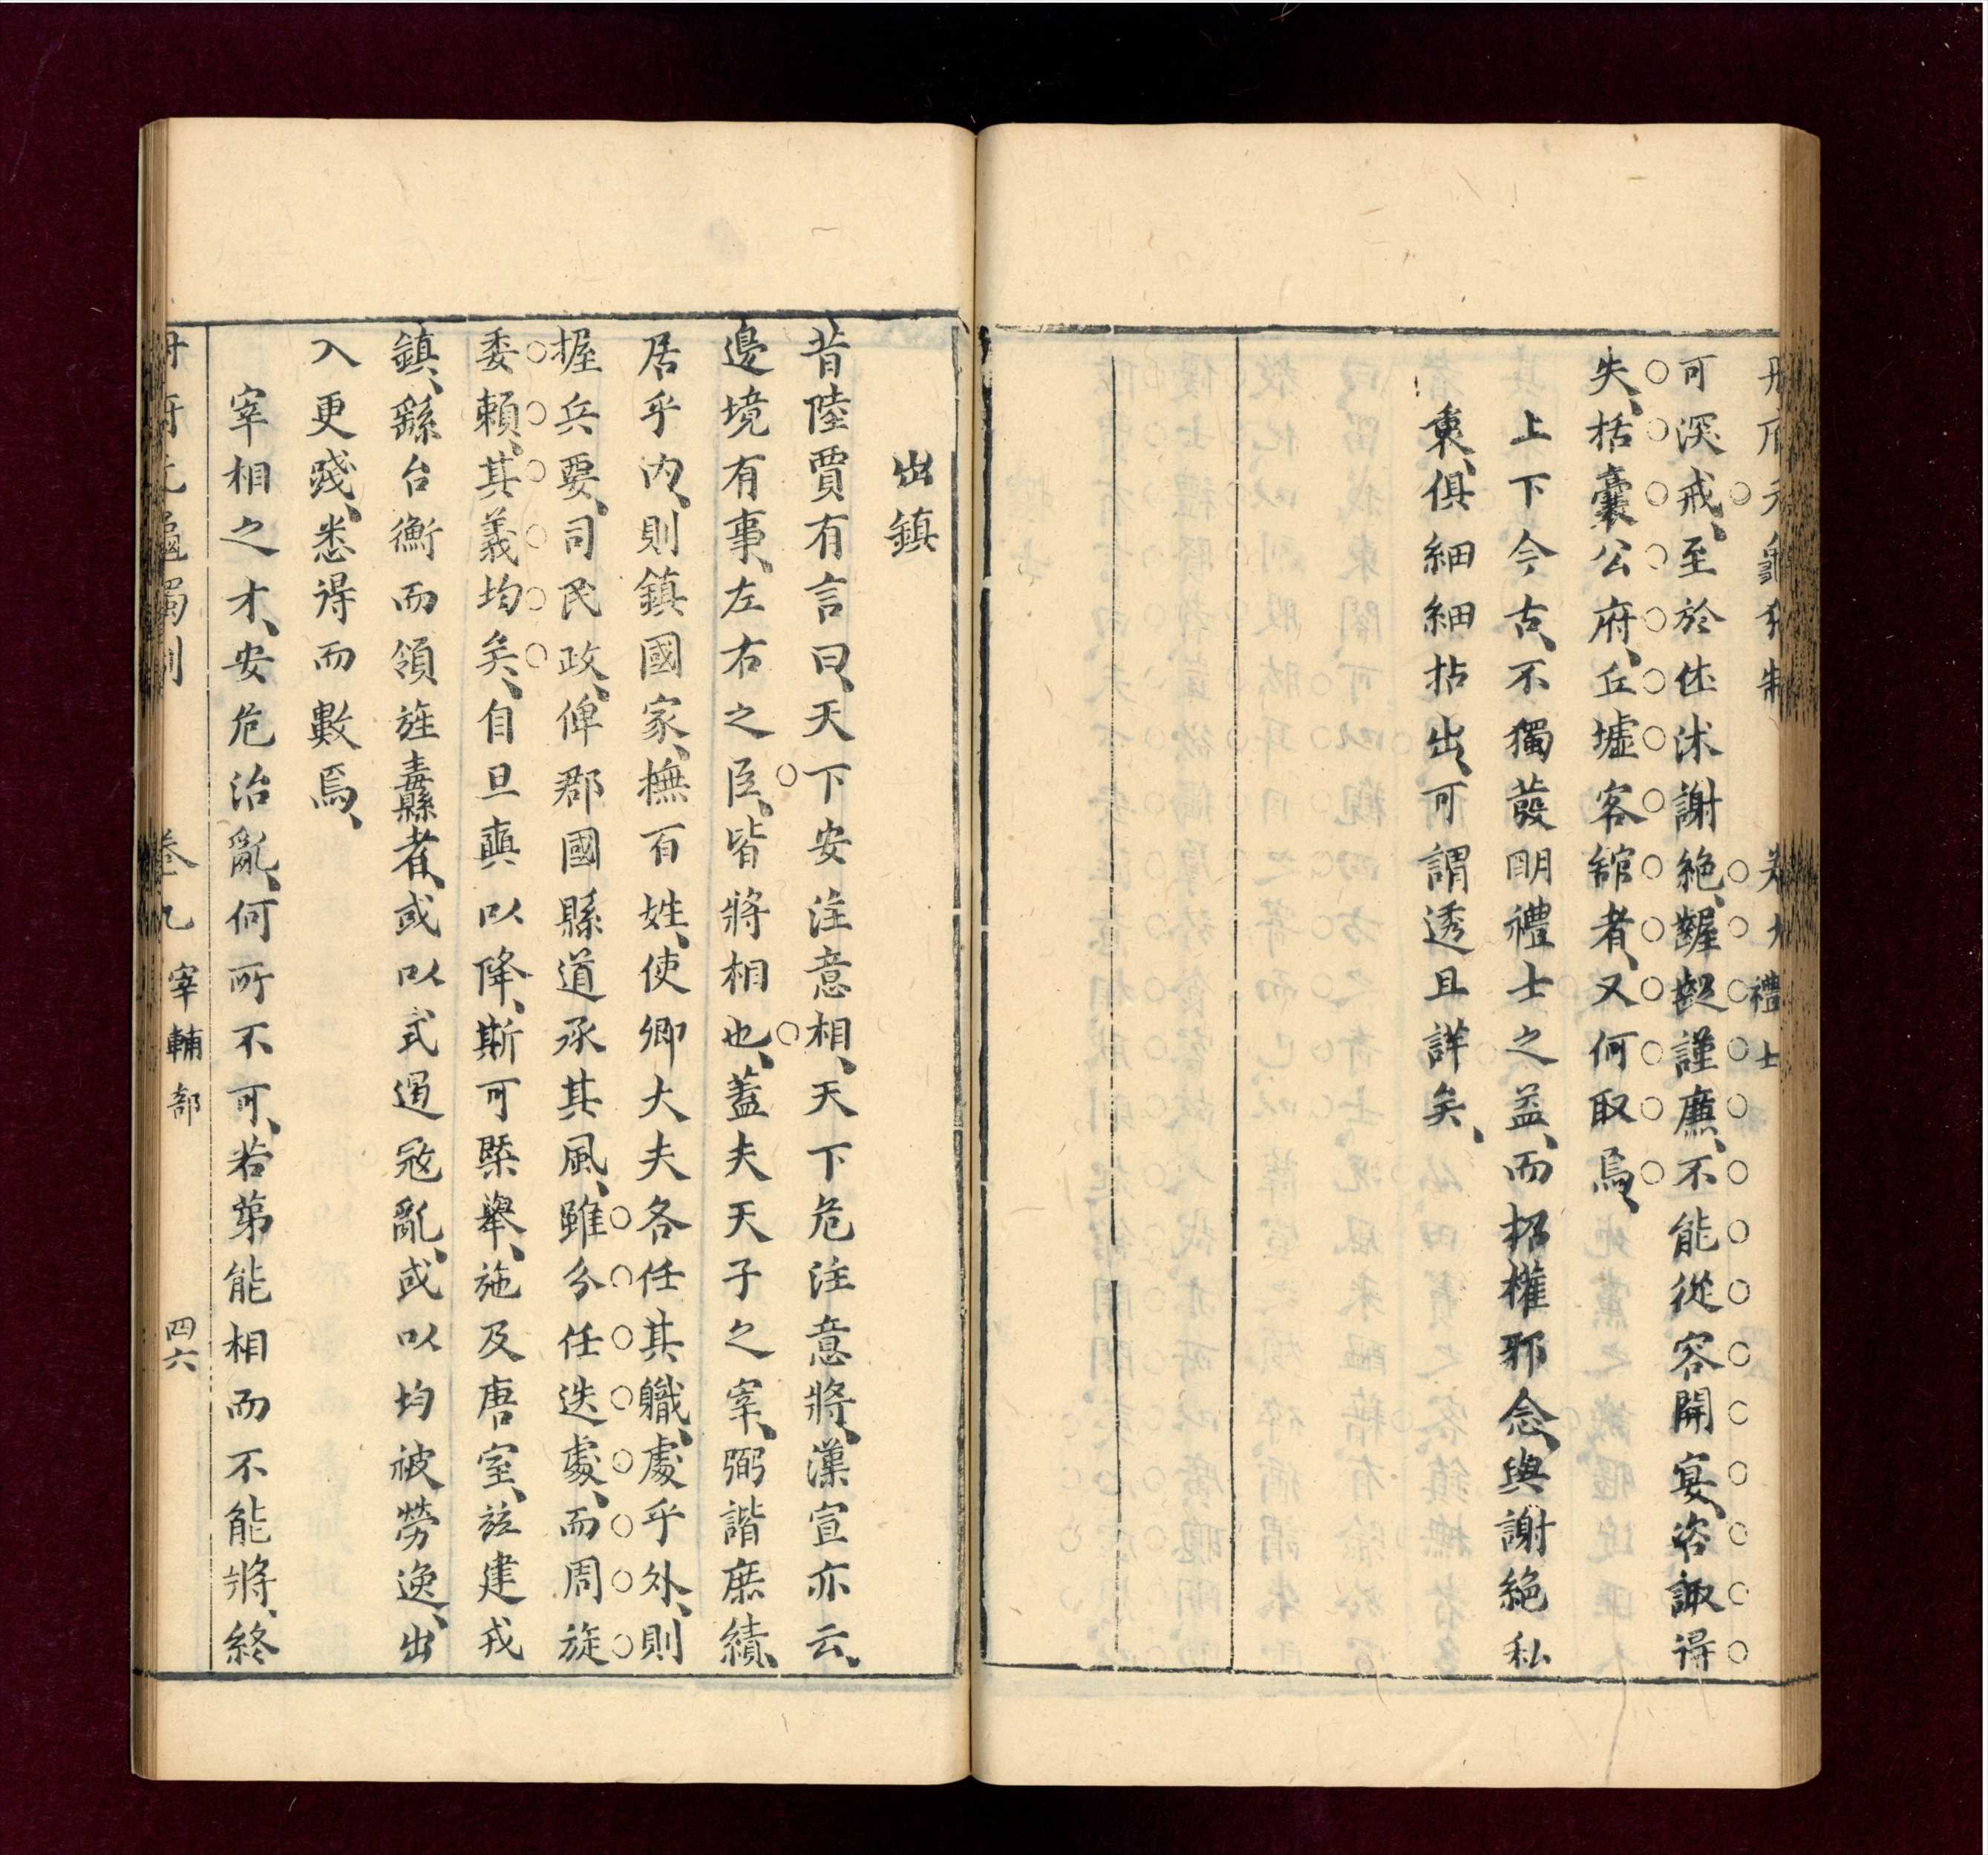 冊府元龜獨制 卷九 禮士
可深戒、至於怯沭謝絶、齷齪謹廉、不能從容開宴、咨諏得
失、括囊公府、丘墟客舘者、又何取焉、
上下今古、不獨發明禮士之益、而招權邪念、與謝絶私
衷、俱細細拈出、可謂透且詳矣、
出鎮
昔陸賈有言曰、天下安注意相、天下危注意將、漢宣亦云、
邊境有事、左右之臣、皆將相也、蓋夫天子之宰、弼諧庶績、
居乎内、則鎮國家、撫百姓、使卿大夫各任其職、處乎外、則
握兵要、司民政、俾郡國縣道承其風、雖分任迭處、而周旋
委賴、其義均矣、自旦奭以降、斯可槩舉、施及唐室、茲建戎
鎮、繇台衡而領旌纛者、或以式遏寇亂、或以均被勞逸、出
入更踐、悉得而數焉、
宰相之才、安危治亂、何所不可、若第能相而不能將、終
冊府元龜獨制 卷九 宰輔部 四六